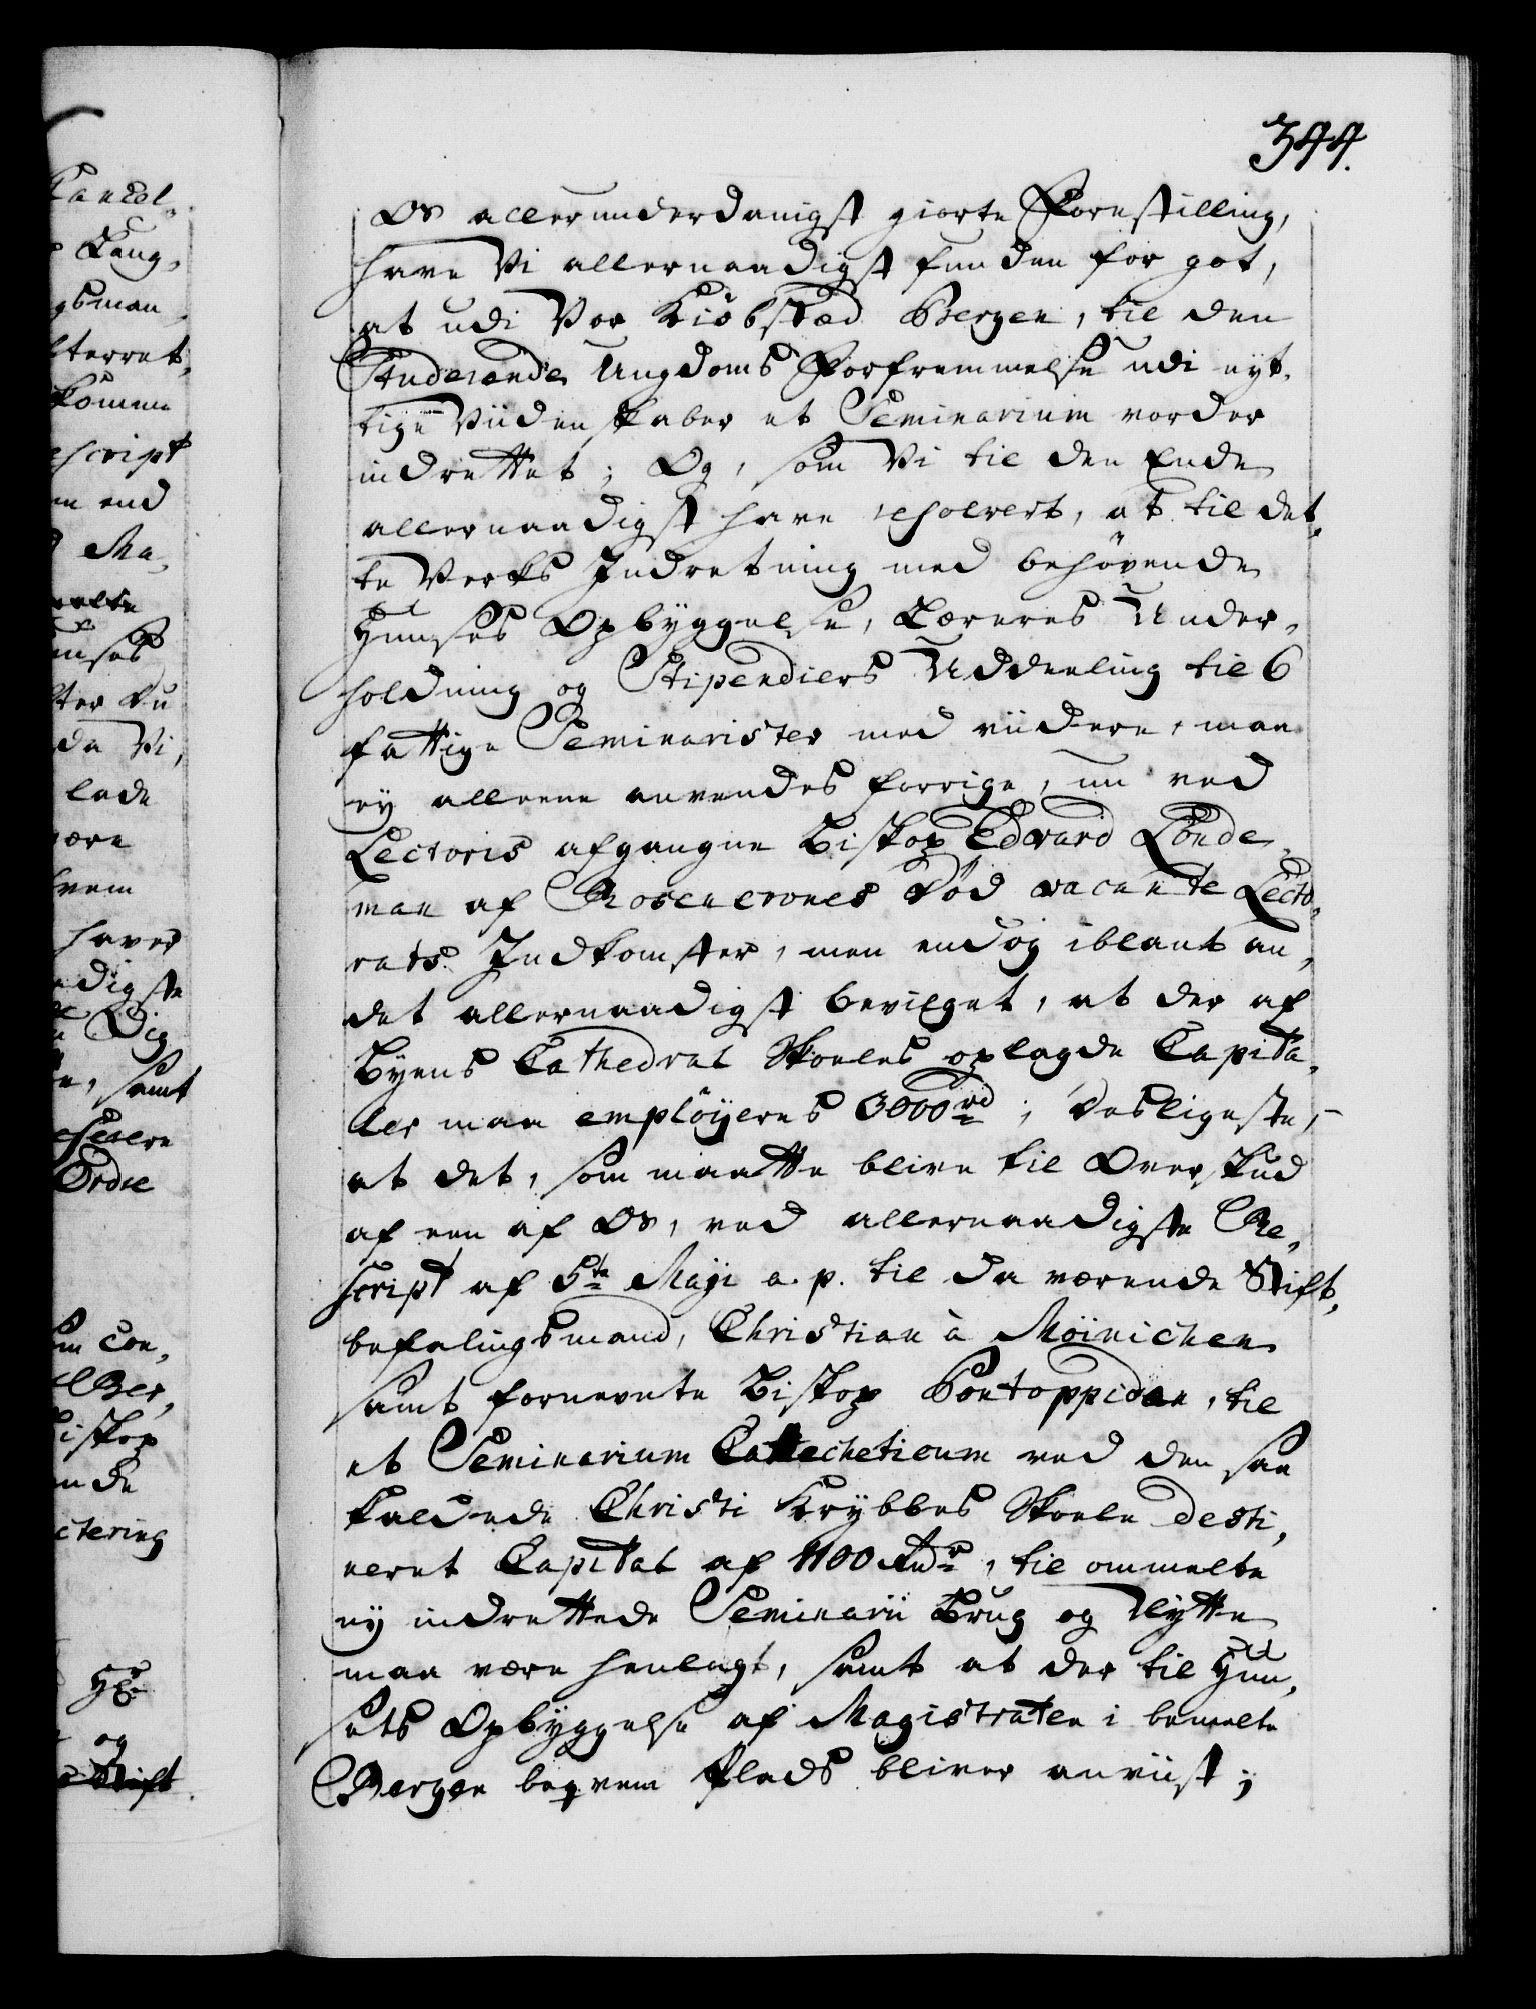 Cancel-
Cang,
gsmau
skomme
escript
en end
Ma,
enses
da Vi,
lade
være
hvem
haver
adigste
Dig
samt
Ordre
em con,
Biskop
ende
ctering
og
Stift
344.
Os allerunderdanigst giorte Forestilling,
have Vi allernaadigst funden for got,
at udi Vor Kiöbstæd Bergen, til den
Studerende Ungdoms Forfremmelse udi nyt,
tige Viidenskaber et Seminarium vorder
indrettet; Og, som Vi til den Ende
allernaadigst have resolvert, at til det,
te Verks Indretning med behövende
Huuses Opbyggelse, Læreres Under,
holdning og Stipendiers Uddeeling til 6
fattige Seminarister med viidere, maa
ey alleene anvendes forrige, nu ved
Lectoris afgangne Biskop Edvard Londe,
man af Rosencrones Död vacante Lecto,
rats Indkomster, men endog iblant an,
det allernaadigst bevilget, at der af
Byens Cathedral Skoeles oplagde Capita,
ler maa emplöyeres 3000 rd; desligeste,
at det, som maatte blive til Overskud
af een af Os, ved allernaadigste Re,
script af 5te Maji a. p. til da værende Stift,
befalingsmand, Christian à Möinichen
samt fornevnte Biskop Pontoppidan, til
et Seminarium Catecheticum ved den saa
kaldede Christi Krybbes Skoele desti,
neret Capital af 1100 Rdr, til ommelte
ny indrettede Seminarii Brug og Nytte
maa være henlagt, samt at der til Huu,
sets Opbyggelse af Magistraten i bemelte
Bergen beqvem Plads bliver anviist;